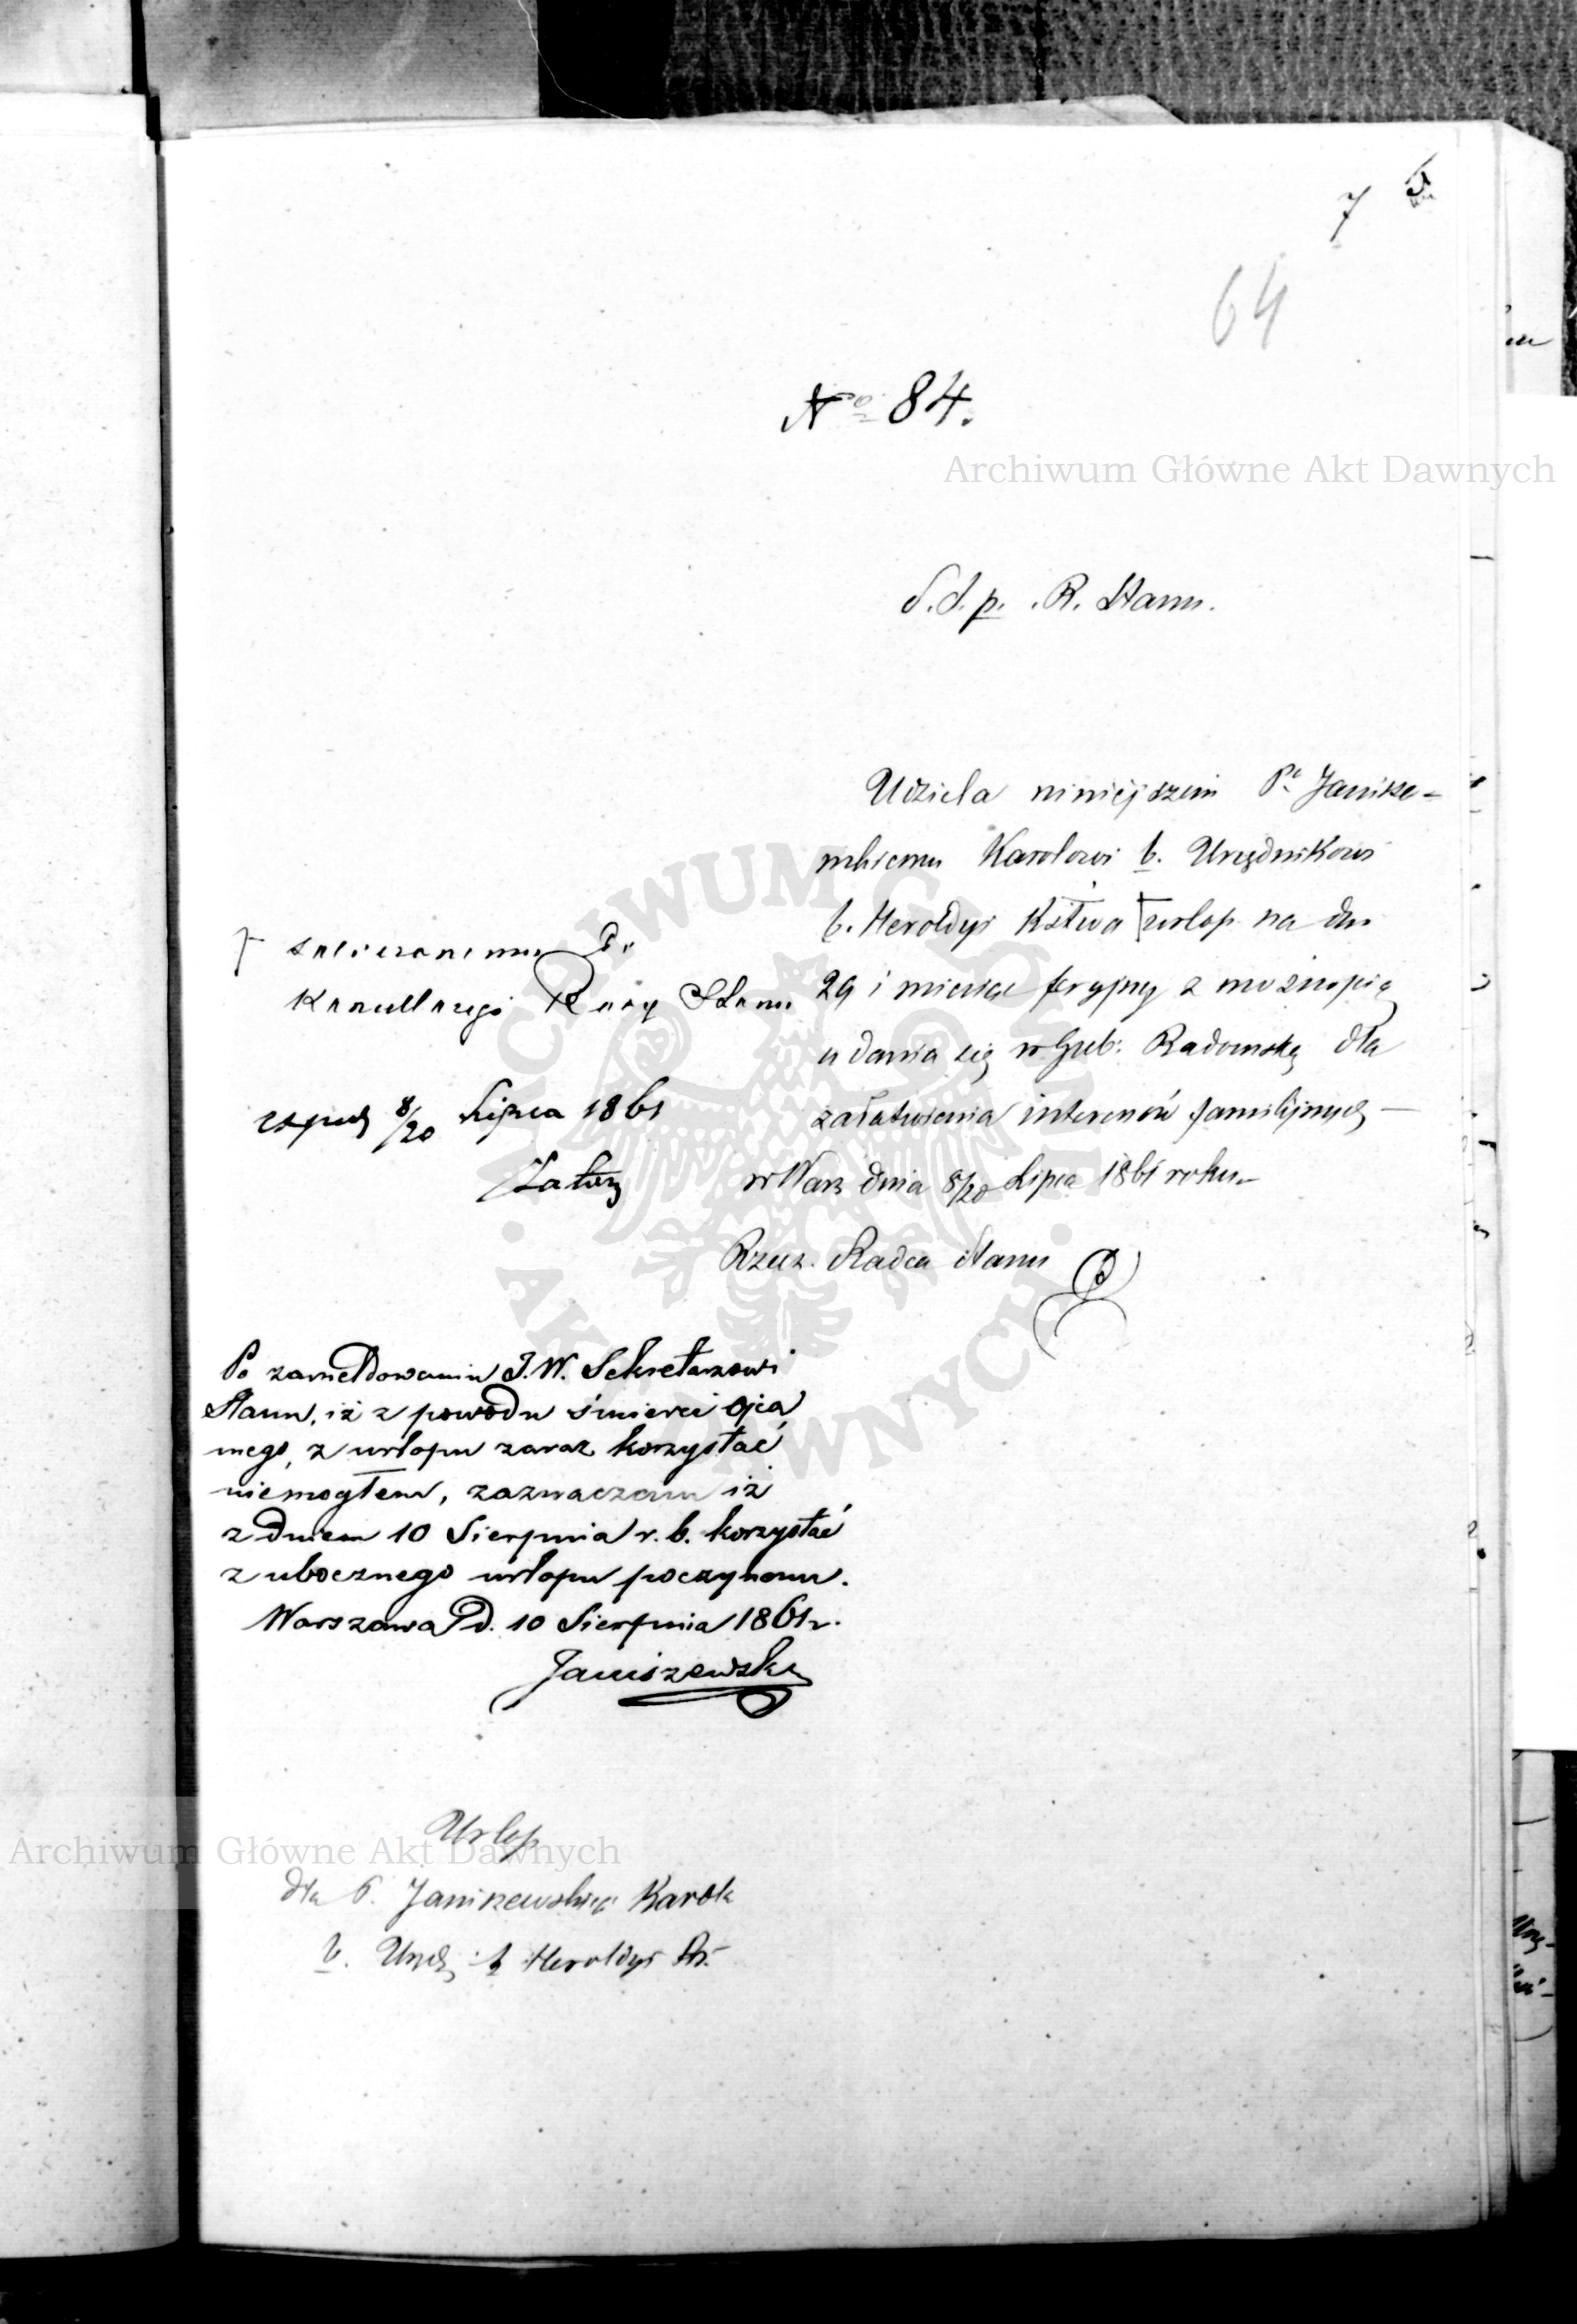 7
64
No 84.
Archiwum Główne Akt Dawnych
S. S. p. R. Stanu.
Udziela niniejszém Pu Janisze-
wskiemu Karolowi b. Urzędnikowi
b. Heroldyi Kstwa urlop na dni
29 i miesiąc feryjny z możnością
udania się w Gub: Radomską dla
załatwienia interesów familijnych —
w Warz dnia 8/20 Lipca 1861 roku.
Rzecz. Radca Stanu
zaliczonemu do
Kancellaryi Rady Stanu
8/20 Lipca 1861
Po zameldowaniu J.W. Sekretarzowi
Stanu, iż z powodu śmierci Ojca
mego, z urlopu zaraz korzystać
niemogłem, zaznaczam iż
z dniem 10 Sierpnia r. b. korzystać
z ubocznego urlopu poczynam.
Warszawa d. 10 Sierpnia 1861 r.
Janiszewski
Urlop
Archiwum Główne Akt Dawnych
dla P. Janiszewskiego Karola
b. Urzęd. b Heroldyi
ARCHIWUM GŁÓWNE AKT DAWNYCH